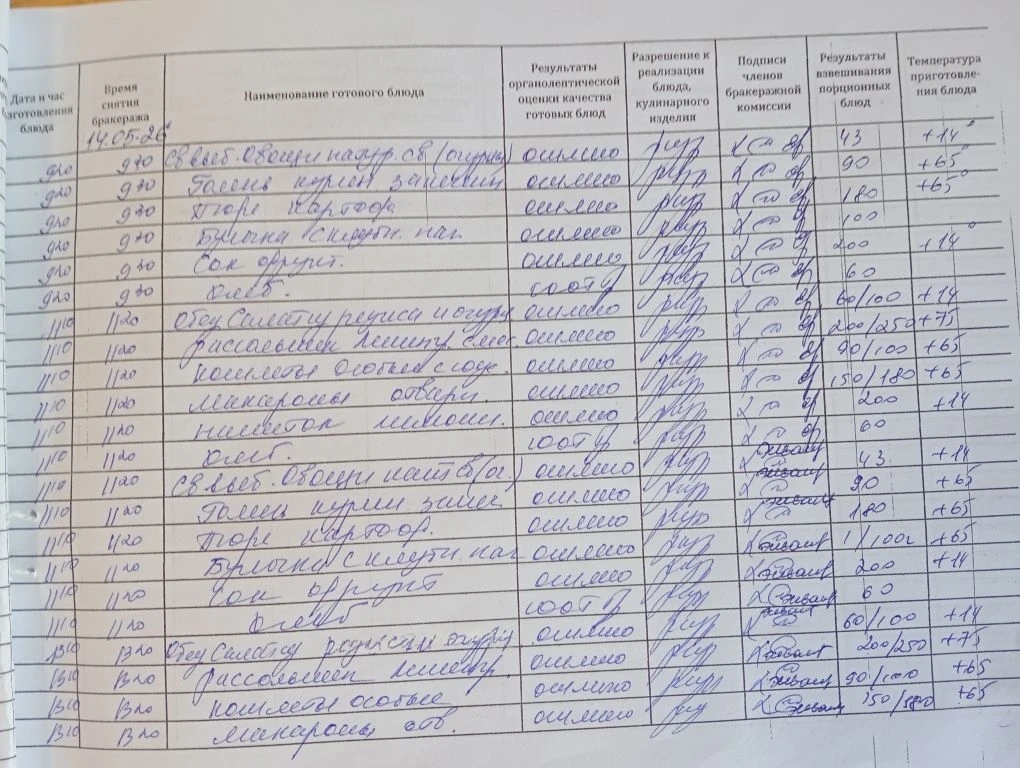 Дата и час изготовления блюда | Время снятия бракеража | Наименование готового блюда | Результаты органолептической оценки качества готовых блюд | Разрешение к реализации блюда, кулинарного изделия | Подписи членов бракеражной комиссии | Результаты взвешивания порционных блюд | Температура приготовления блюда
14.05-26
9 20 | 9 30 | Св выб. Овощи натур. св (огурцы) | отлично | 43 | +14°
9 20 | 9 30 | Голень курин запечен | отлично | 90 | +65°
9 20 | 9 30 | Пюре картоф | отлично | 180 | +65°
9 20 | 9 30 | Булочка с нач. | отлично | 100
9 20 | 9 30 | Сок фрукт. | отлично | 200 | +14°
9 20 | 9 30 | хлеб. | соотв | 60
11 10 | 11 20 | Обед Салат с редиса и огурц | отлично | 60/100 | +14
11 10 | 11 20 | рассольник ленингр. | отлично | 200/250 | +75
11 10 | 11 20 | котлеты особые | отлично | 90/100 | +65
11 10 | 11 20 | макароны отварн. | отлично | 150/180 | +65
11 10 | 11 20 | напиток лимонн. | отлично | 200 | +14
11 10 | 11 20 | хлеб. | соотв | 60
11 10 | 11 20 | Св выб. Овощи нат св (ог.) | отлично | 43 | +14
11 10 | 11 20 | Голень курин. запеч. | отлично | 90 | +65
11 10 | 11 20 | Пюре картоф. | отлично | 180 | +65
11 10 | 11 20 | Булочка с нач | отлично | 1/100г | +65
11 10 | 11 20 | Сок фрукт | отлично | 200 | +14
11 10 | 11 20 | хлеб | соотв | 60
13 10 | 13 20 | Обед Салат с редисом огурц | отлично | 60/100 | +14
13 10 | 13 20 | рассольник ленингр. | отлично | 200/250 | +75
13 10 | 13 20 | котлеты особые | отлично | 90/100 | +65
13 10 | 13 20 | макароны отв. | отлично | 150/180 | +65